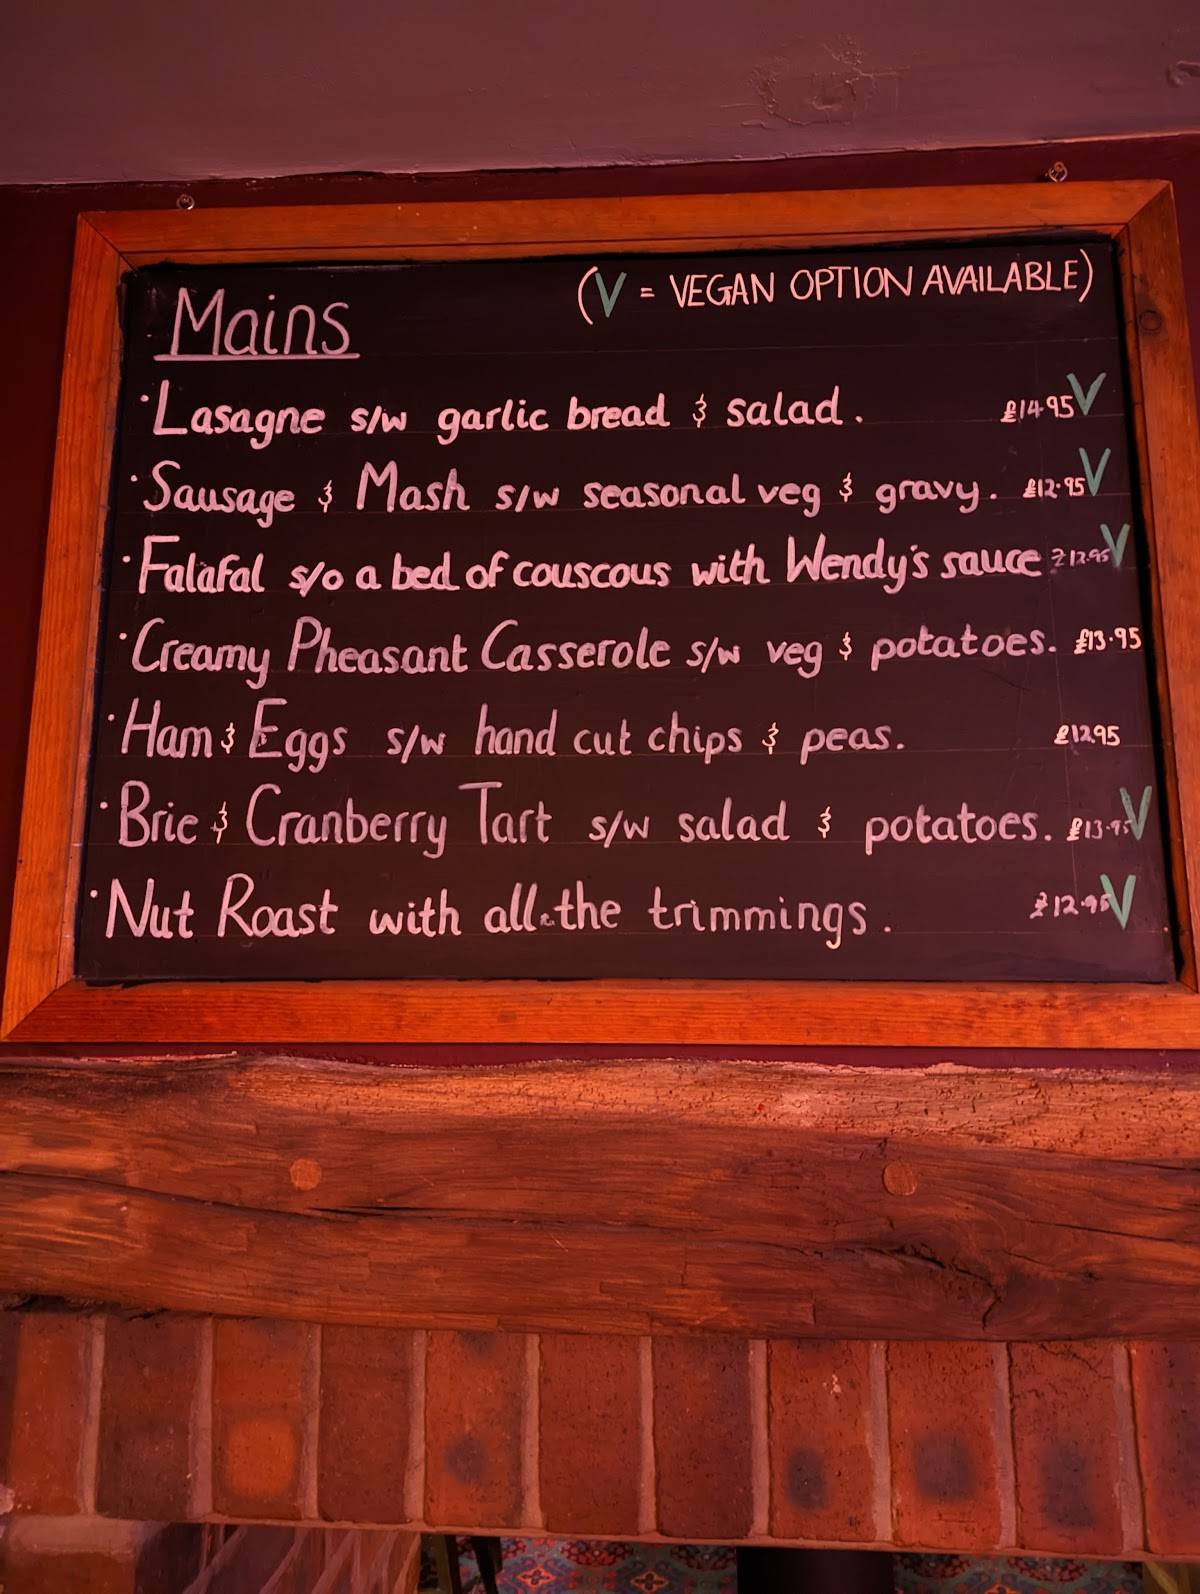 Mains
(V = VEGAN OPTION AVAILABLE)
· Lasagne s/w garlic bread & salad. £14.95 V
· Sausage & Mash s/w seasonal veg & gravy. £12.95 V
· Falafal s/o a bed of couscous with Wendy's sauce £12.95 V
· Creamy Pheasant Casserole s/w veg & potatoes. £13.95
· Ham & Eggs s/w hand cut chips & peas. £12.95
· Brie & Cranberry Tart s/w salad & potatoes. £13.95 V
· Nut Roast with all the trimmings. £12.95 V